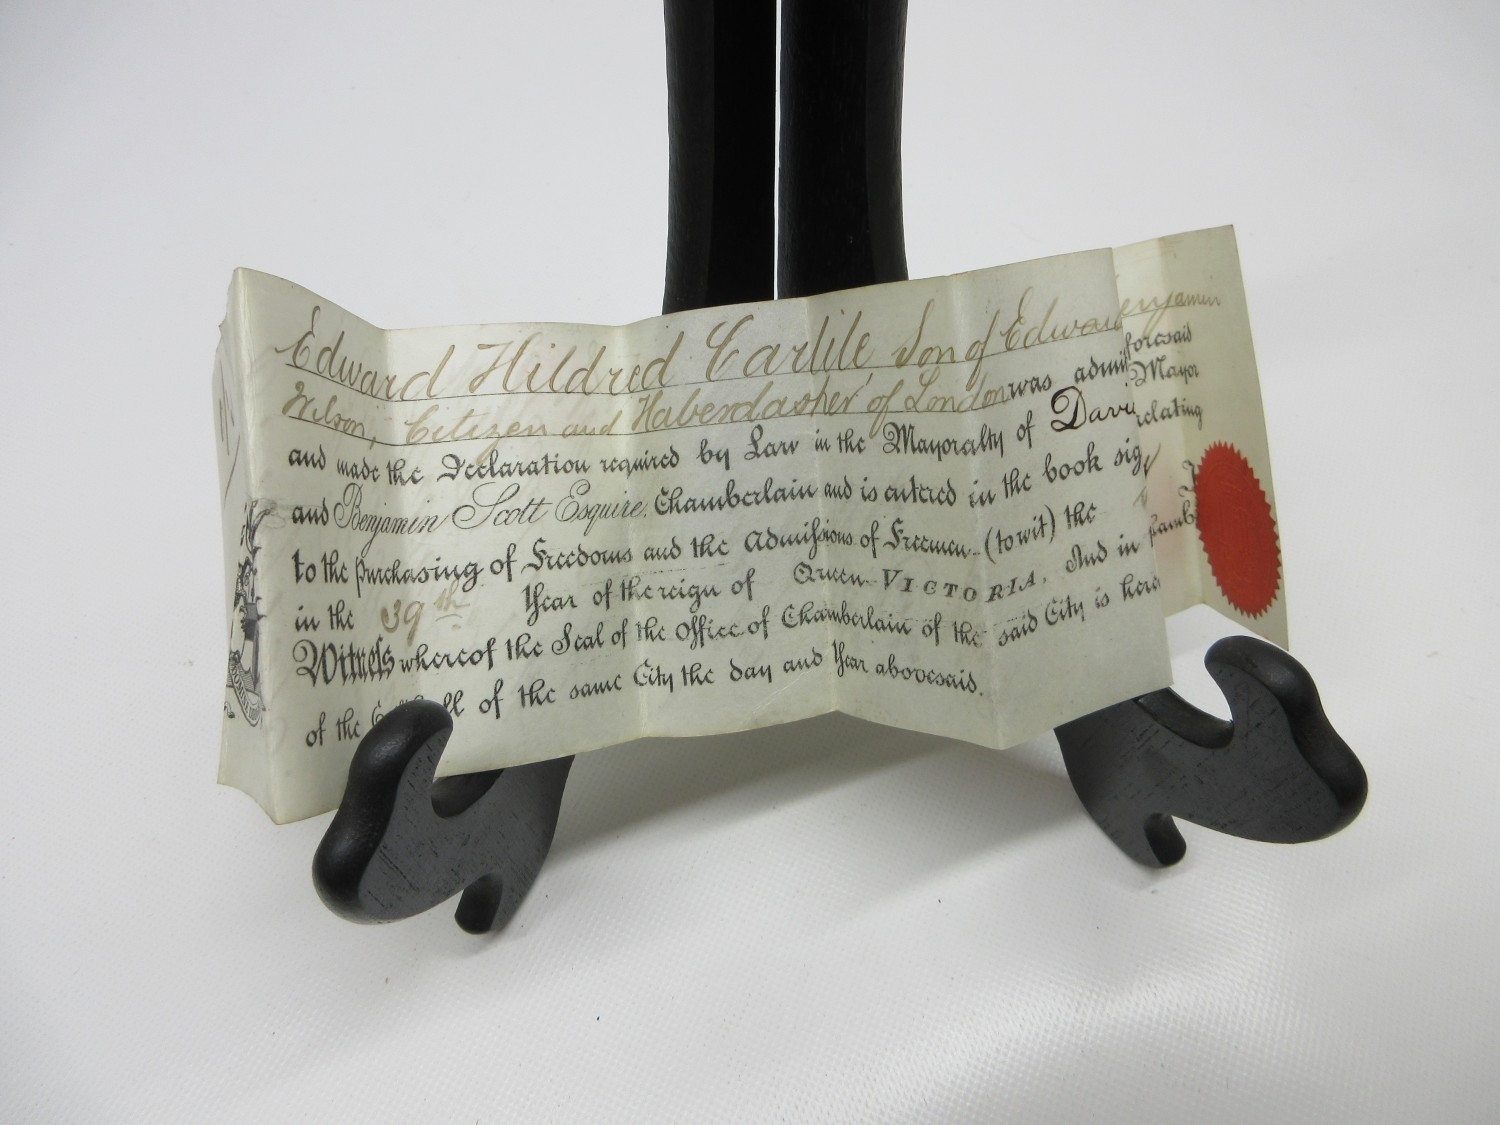 Edward Hildred Carlile, Son of Edward
Wilson, Citizen and Haberdasher of London was admi foresaid
and made the Declaration required by Law in the Mayoralty of Davi Mayor
and Benjamin Scott Esquire, Chamberlain and is entered in the book sig relating
to the purchasing of Freedoms and the Admissions of Freemen (to wit) the
in the 39th Year of the reign of Queen VICTORIA. And in
Witness whereof the Seal of the Office of Chamberlain of the said City is here
of the of the same City the day and Year abovesaid.